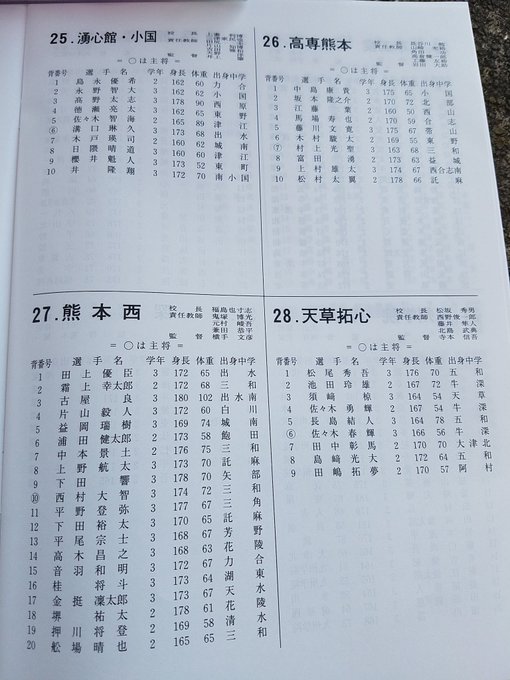 25.湧心館・小国
校長
責任教師
監督
= ○は主将 =
背番号 選手名 学年 身長 体重 出身中学
1 島永優希 2 162 60 力合
2 永野智大 3 162 62 小国
3 高野太志 3 178 90 原
4 徳瀬亮太 3 162 56 西
5 佐々木智海 2 165 65 東野
⑥ 溝口琳久 3 165 89 津
7 木戸瑛司 2 173 68 江南
8 日隈晴道 2 160 62 出
9 櫻井魁人 3 173 60 城
10 井隆翔 3 172 52 東町
70 南小国
26.高専熊本
校長
責任教師
監督
= ○は主将 =
背番号 選手名 学年 身長 体重 出身中学
1 中島康貴 3 175 65 小国
2 坂本隆之介 2 170 72 北部
3 江藤葉 2 160 50 西山
4 馬場寿也 2 170 59 合志
5 藤川文寛 3 167 75 帯山
6 木村朧大 2 169 55 東野
⑦ 村上光聖 3 163 68 三和
8 富田湧 2 173 63 益城
9 上村雄太 3 174 67 西合志南
10 松村太翼 2 178 66 託麻
27.熊本西
校長 福島也寸志
責任教師 鬼塚博光
元村峻吾
兼田恭平
監督 横手文彦
= ○は主将 =
背番号 選手名 学年 身長 体重 出身中学
1 田上優臣 3 172 65 出水
2 霜上幸太郎 2 172 68 三和
3 古屋良 3 180 102 出水南
4 片山毅人 3 172 60 白川
5 益岡瑞樹 3 169 74 城南
6 浦田健太郎 2 173 58 飽田
7 中本景土 2 176 75 三和
8 上野航太 3 173 70 託麻
9 下田響 3 178 70 矢部
⑩ 西村大智 3 174 72 三和
11 平野登弥 3 177 73 三角
12 下田裕太 2 170 65 託麻
13 平尾宗士 3 168 62 芳野
14 高木昌之 3 168 63 花陵
15 音羽和明 3 172 67 力合
16 桂将斗 3 173 64 湖東
17 金挺凜太郎 3 173 67 天水
18 堺祐太 2 178 61 花陵
19 押川将登 2 169 68 清水
20 舩場晴也 2 165 65 三和
28.天草拓心
校長 松坂秀男
責任教師 西野俊一郎
藤井隼人
北島武典
監督 寺本信吾
= ○は主将 =
背番号 選手名 学年 身長 体重 出身中学
1 松尾秀吾 3 176 70 五和
2 池田玲雄 2 167 72 牛深
3 須﨑椋 3 164 54 天草
4 佐々木勇輝 2 164 54 牛深
5 長島結人 3 164 54 五和
⑥ 佐々木春輝 3 166 56 牛深
7 田中彰馬 2 170 70 大津北
8 島﨑光大 2 164 54 五和
9 田嶋拓夢 2 170 57 阿村